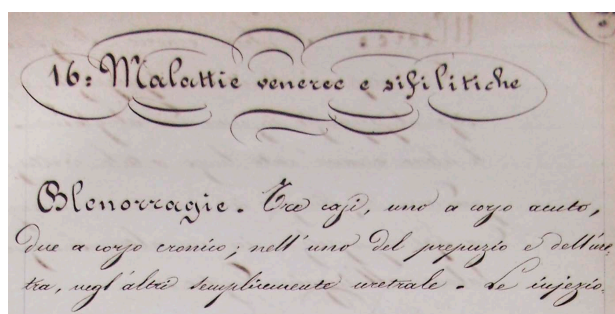 16: Malattie veneree e sifilitiche
Blenorragie. Tre casi, uno a corso acuto,
due a corso cronico; nell'uno del prepuzio e dell'ure-
tra, negl'altri semplicemente uretrale. Le injezio-